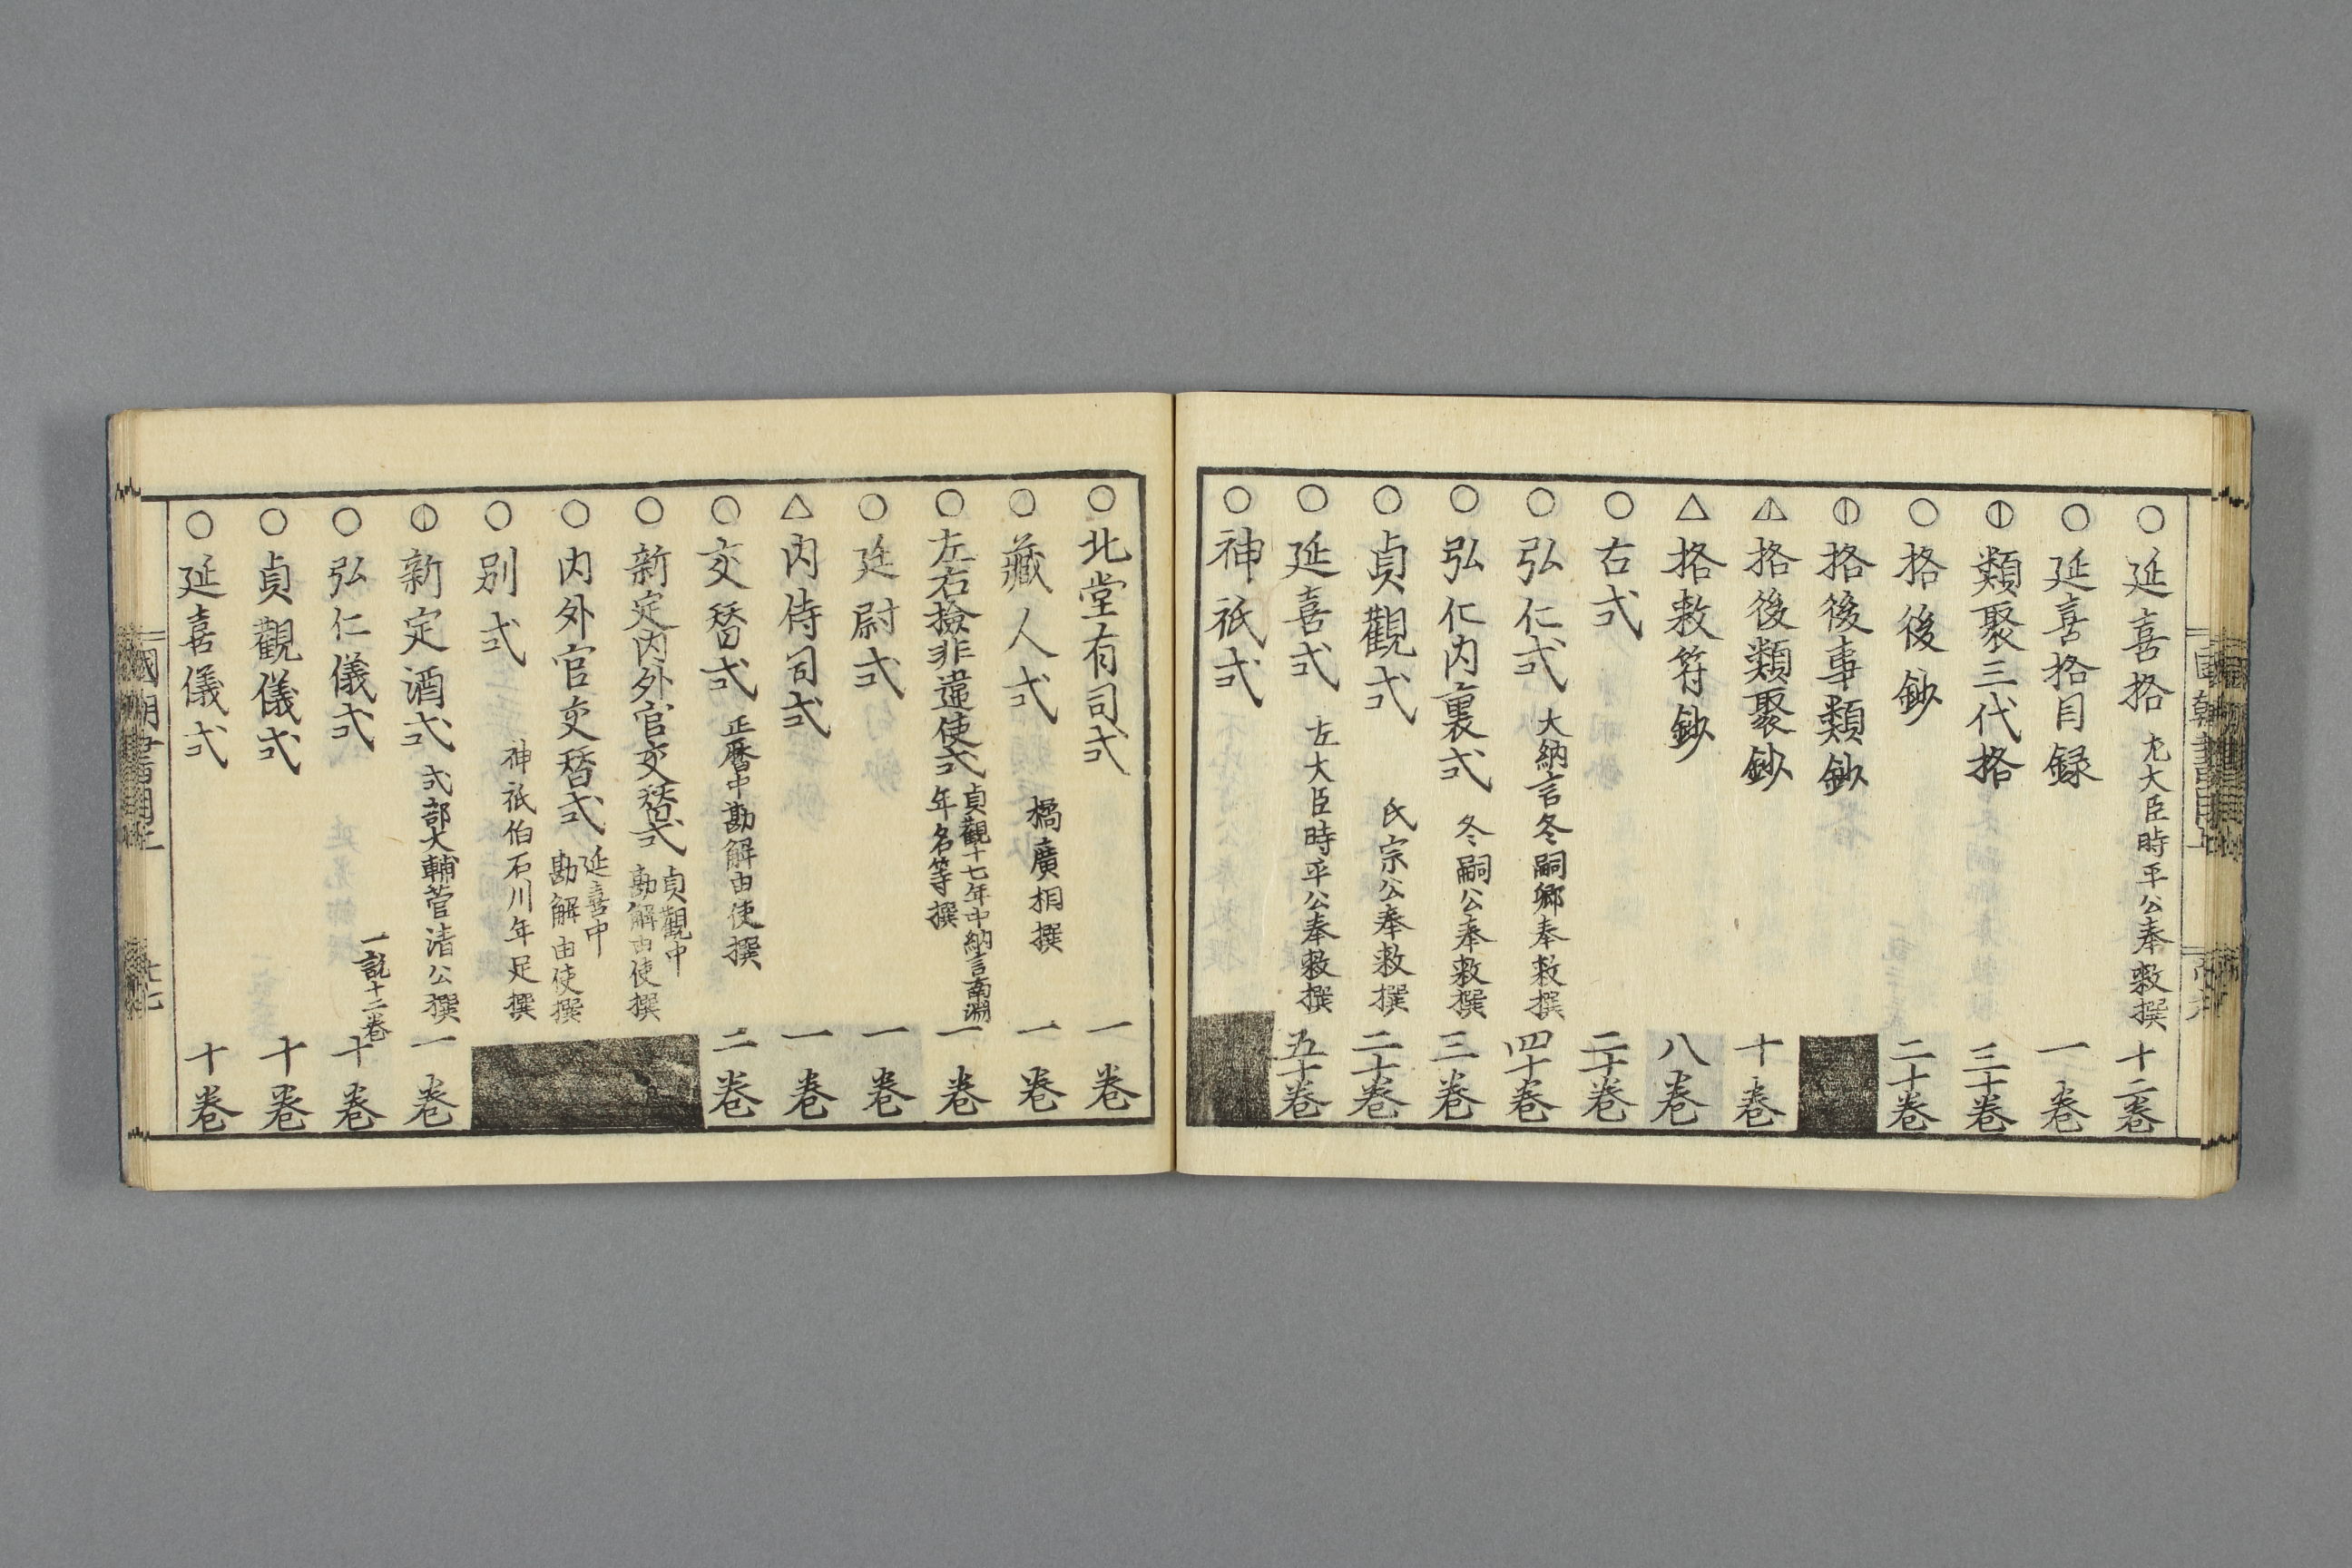 ○延喜格 左大臣時平公奉敕撰 十二巻
○延喜格目録 一巻
類聚三代格 三十巻
○格後鈔 二十巻
格後事類鈔
格後類聚鈔 十巻
△格敕符鈔 八巻
○右式 二十巻
○弘仁式 大納言冬嗣卿奉敕撰 四十巻
○弘仁内裏式 冬嗣公奉敕撰 三巻
○貞觀式 氏宗公奉敕撰 二十巻
○延喜式 左大臣時平公奉敕撰 五十巻
○神祇式
○北堂有司式 一巻
○藏人式 橘廣相撰 一巻
○左右撿非違使式 貞觀十七年中納言南淵年名等撰 一巻
○廷尉式 一巻
△内侍司式 一巻
○交替式 正暦中勘解由使撰 二巻
○新定内外官交替式 貞觀中勘解由使撰
○内外官交替式 延喜中勘解由使撰
○別式 神祇伯石川年足撰
新定酒式 式部大輔菅清公撰 一巻
○弘仁儀式 一説十二巻 十巻
○貞觀儀式 十巻
○延喜儀式 十巻